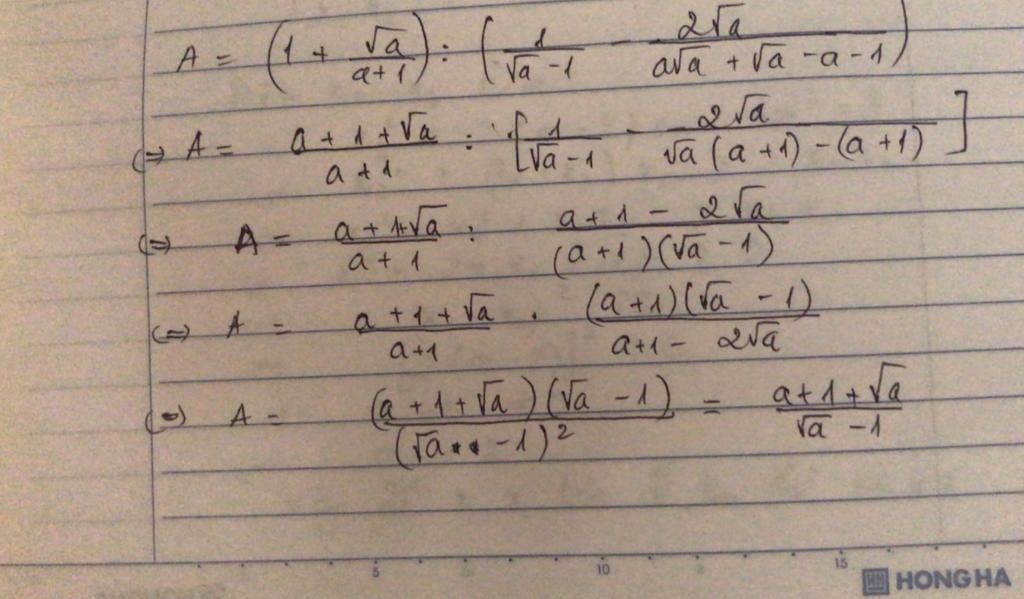 A = (1 + √a/(a+1)) : (1/(√a - 1) - 2√a/(a√a + √a - a - 1))
(=) A = (a + 1 + √a)/(a + 1) : [1/(√a - 1) - 2√a/(√a (a + 1) - (a + 1))]
(=) A = (a + 1 + √a)/(a + 1) : (a + 1 - 2√a)/((a + 1)(√a - 1))
(=) A = (a + 1 + √a)/(a+1) . ((a+1)(√a - 1))/(a+1 - 2√a)
(=) A = ((a + 1 + √a)(√a - 1))/((√a - 1)²) = (a + 1 + √a)/(√a - 1)
5 10 15
HONG HA